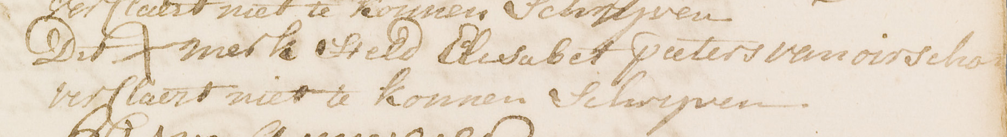 verklaert niet te konnen Schrijven
Dit merk steld Elisabet peeters van oirscho
verklaert niet te konnen Schrijven